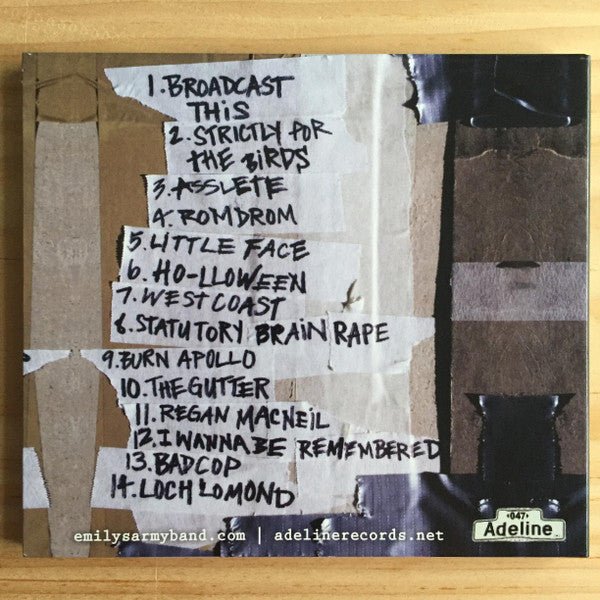 1. BROADCAST
THIS
2. STRICTLY FOR
THE BIRDS
3. ASSLETE
4. ROMDROM
5. LITTLE FACE
6. HO-LLOWEEN
7. WEST COAST
8. STATUTORY BRAIN RAPE
9. BURN APOLLO
10. THE GUTTER
11. REGAN MACNEIL
12. I WANNA BE REMEMBERED
13. BAD COP
14. LOCH LOMOND
emilysarmyband.com | adelinerecords.net
•047•
Adeline